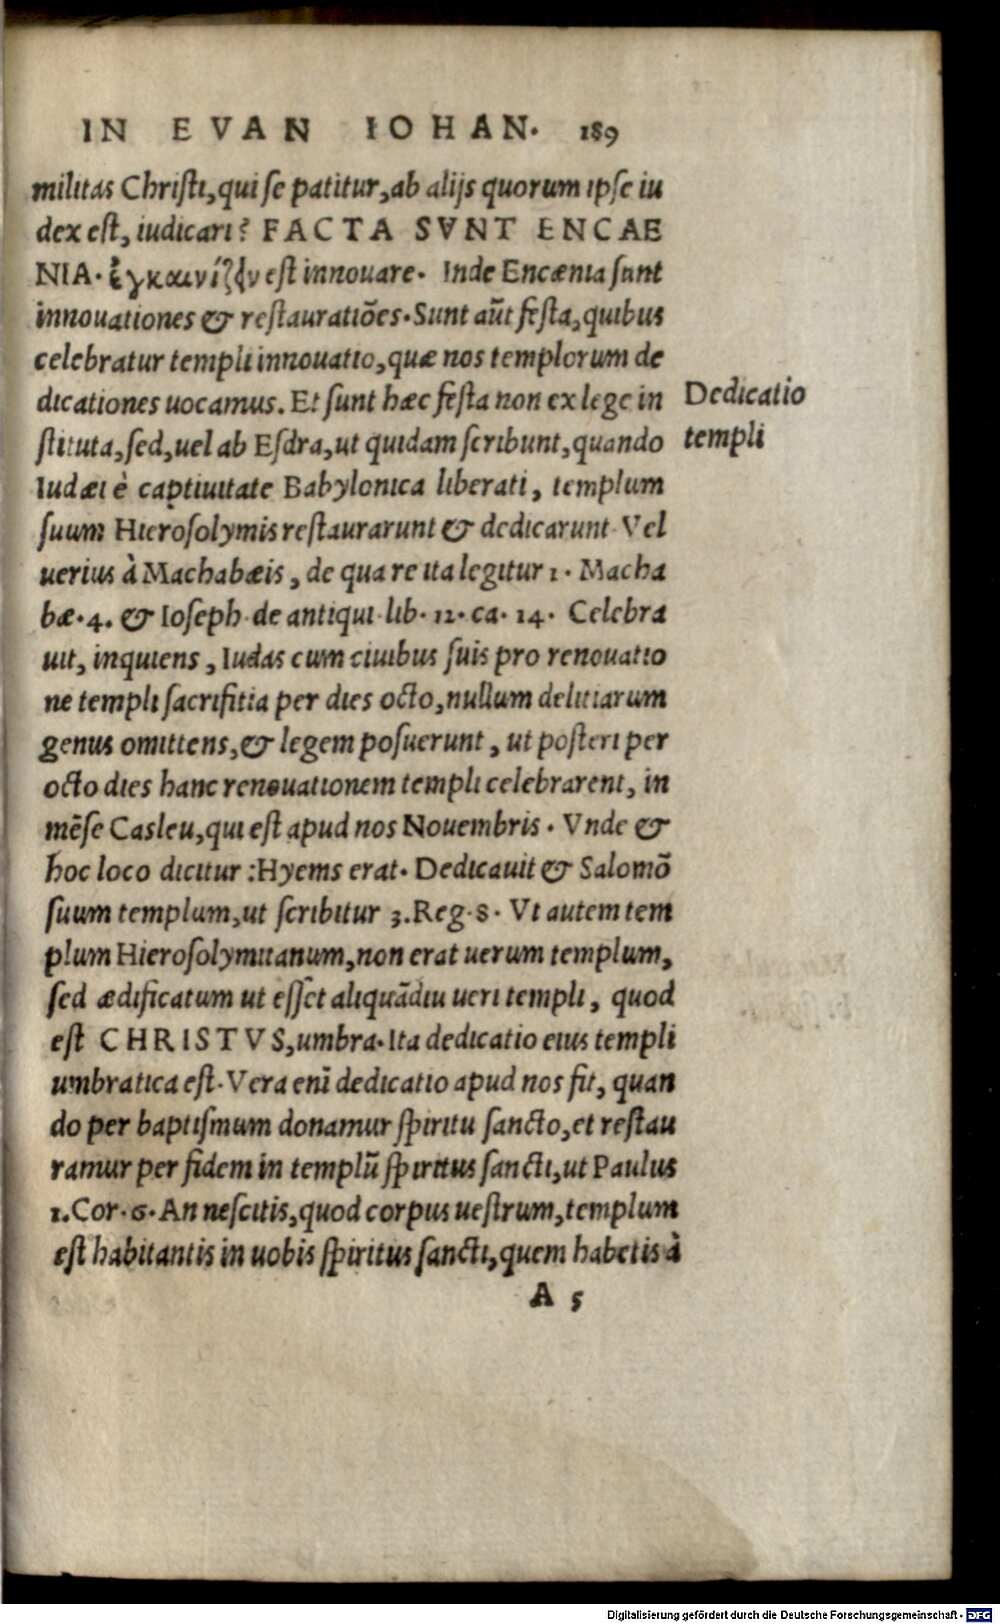 IN EVAN IOHAN. 189
militas Christi, qui se patitur, ab alijs quorum ipse iu
dex est, iudicari? FACTA SVNT ENCAE
NIA. ἐγκαινίζειν est innouare. Inde Encænia sunt
innouationes & restauratiões. Sunt aũt festa, quibus
celebratur templi innouatio, quæ nos templorum de
dicationes uocamus. Et sunt hæc festa non ex lege in
Dedicatio
stituta, sed, uel ab Esdra, ut quidam scribunt, quando
templi
Iudæi è captiuitate Babylonica liberati, templum
suum Hierosolymis restaurarunt & dedicarunt. Vel
uerius à Machabæis, de qua re ita legitur 1. Macha
bæ. 4. & Ioseph. de antiqui. lib. 12. ca. 14. Celebra
uit, inquiens, Iudas cum ciuibus suis pro renouatio
ne templi sacrifitia per dies octo, nullum delitiarum
genus omittens, & legem posuerunt, ut posteri per
octo dies hanc renouationem templi celebrarent, in
mẽse Casleu, qui est apud nos Nouembris. Vnde &
hoc loco dicitur: Hyems erat. Dedicavit & Salomõ
suum templum, ut scribitur 3. Reg. 8. Vt autem tem
plum Hierosolymitanum, non erat uerum templum,
sed ædificatum ut esset aliquãdiu ueri templi, quod
est CHRISTVS, umbra. Ita dedicatio eius templi
umbratica est. Vera enĩ dedicatio apud nos fit, quan
do per baptismum donamur spiritu sancto, et restau
ramur per fidem in templũ spiritus sancti, ut Paulus
1. Cor. 6. An nescitis, quod corpus uestrum, templum
est habitantis in uobis spiritus sancti, quem habetis à
A 5
Digitalisierung gefördert durch die Deutsche Forschungsgemeinschaft - DFG